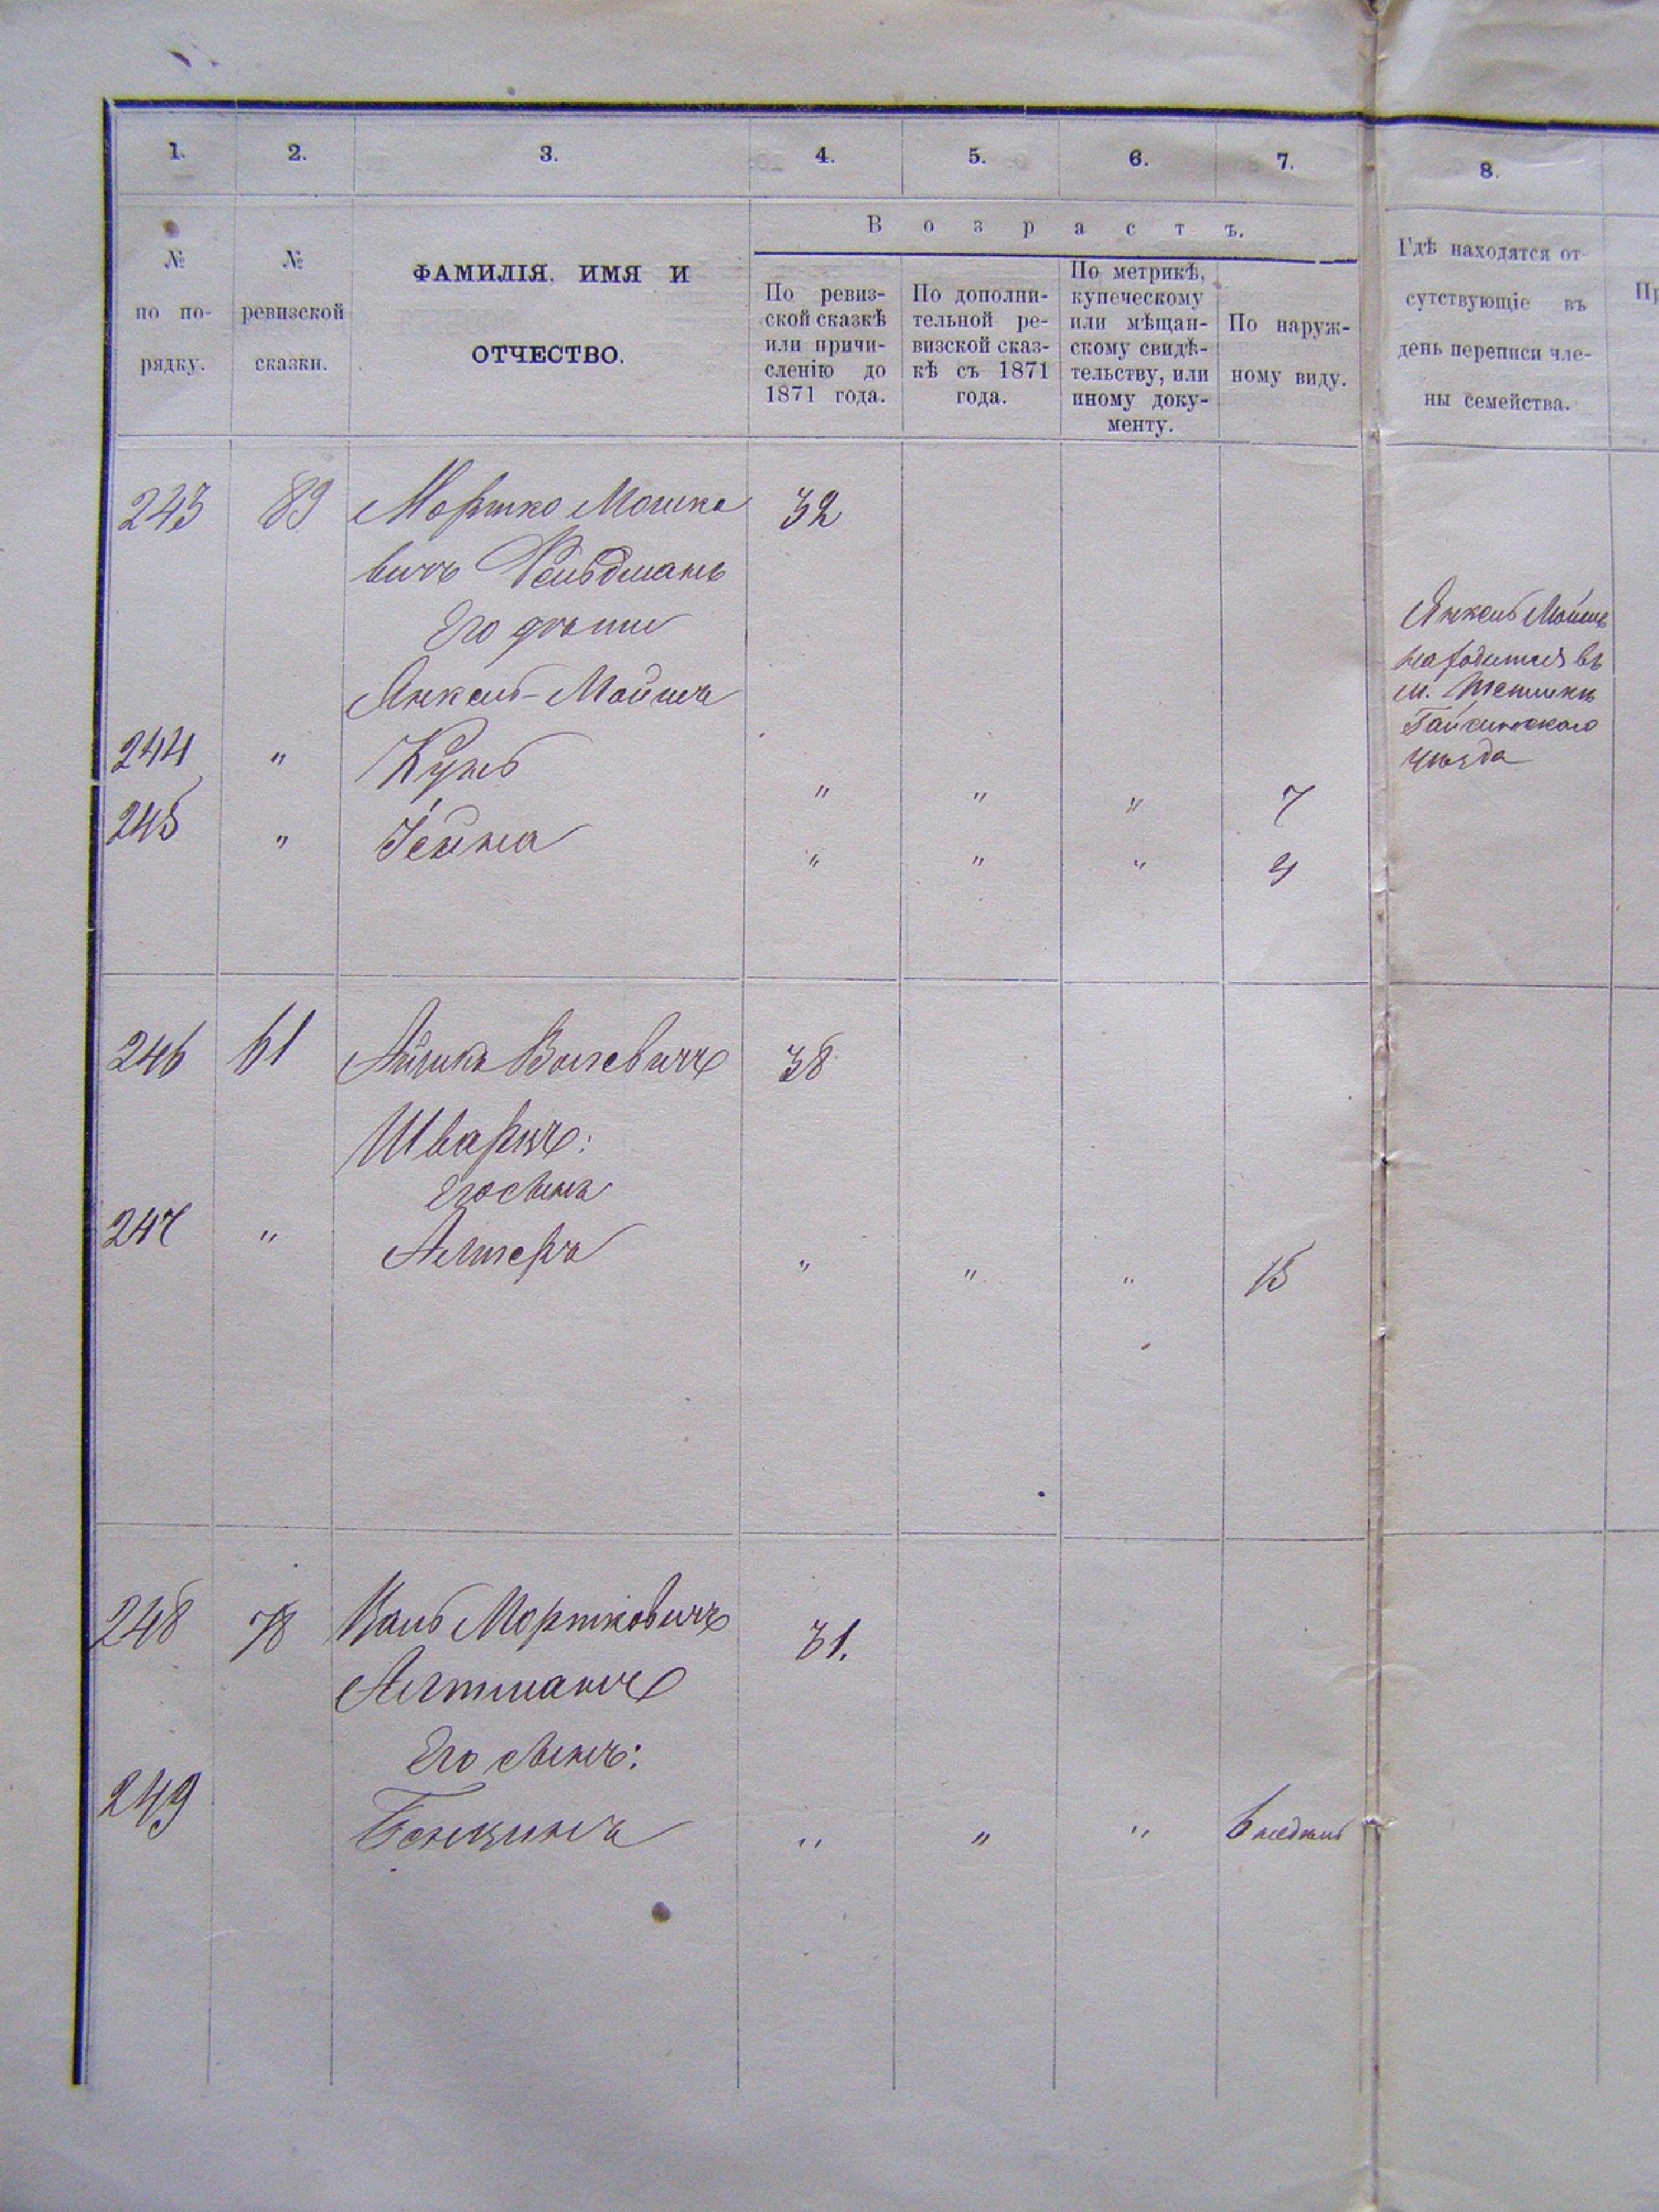 1. 2. 3. 4. 5. 6. 7. 8.
Возрастъ.
№ по по-
рядку.
№ ревизской
сказки.
ФАМИЛІЯ, ИМЯ И
ОТЧЕСТВО.
По ревиз-
ской сказкѣ
или причи-
сленію до
1871 года.
По дополни-
тельной ре-
визской сказ-
кѣ съ 1871
года.
По метрикѣ,
купеческому
или мѣщан-
скому свидѣ-
тельству, или
иному доку-
менту.
По наруж-
ному виду.
Гдѣ находятся от-
сутствующіе въ
день переписи чле-
ны семейства.
Пр
243 89 Мортко Мошко 32
вичъ Фельдманъ
Его дѣти
Янкель-Мойша
244 " Куль " " " 7
245 " " " " 4
Янкель Мойша
находится въ
м.
Гайсинскаго
уѣзда
246 61 38
Шварцъ:
Его сынъ
247 " Алтеръ " " " 15
248 78 Мортковичъ 31.
Алтманъ
Его сынъ:
249 Бенционъ " " " 6 недель